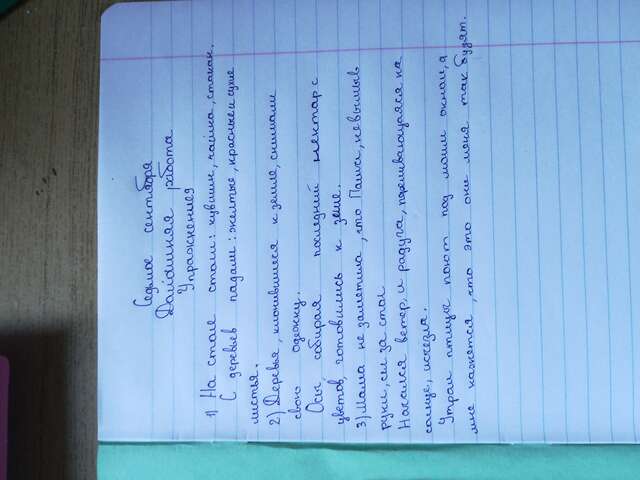 Седьмое сентября
Домашняя работа
Упражнение
1) На столе стоят: кувшин, чашка, стакан.
С деревьев падали: желтые, красные и сухие
листья.
2) Деревья, клонившиеся к земле, снимали
свою одежку.
Осы собирая последний нектар с
цветов, готовились к зиме.
3) Мама не заметила, что Паша, не вымыв
руки, сел за стол
Начался ветер, и радуга, переливающаяся на
солнце, исчезла.
Утром птицы поют под моим окном, а
мне кажется, что это они меня так будят.